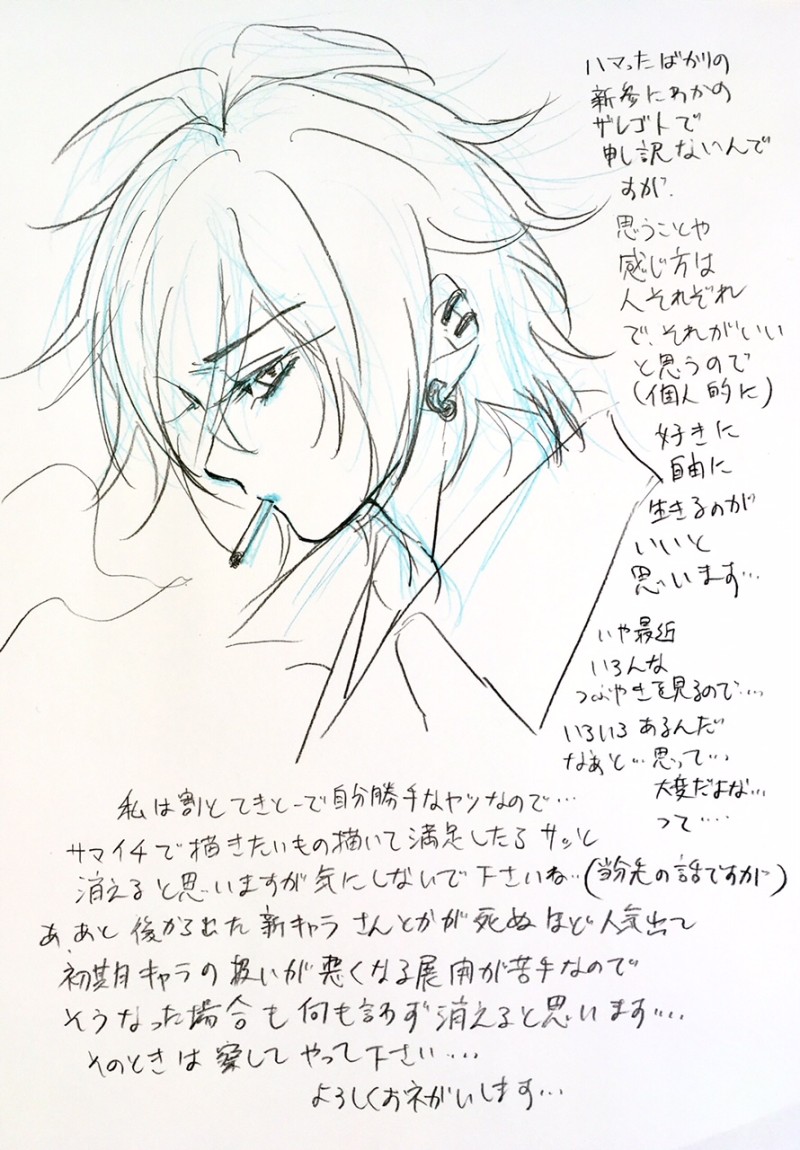 ハマったばかりの
新参にわかの
ザレゴトで
申し訳ないんで
すが.
思うことや
感じ方は
人それぞれ
で、それがいい
と思うので
(個人的に)
好きに
自由に
生きるのが
いいと
思います…
いや最近
いろんな
つぶやきを見るので‥‥
いろいろあるんだ
なぁと…思って…
大変だよな…
って‥‥
私は割とてきとーで自分勝手なヤツなので…
サマイチで描きたいもの描いて満足したらサッと
消えると思いますが気にしないで下さいね‥(当分先の話ですが)
あ、あと後から出た新キャラさんとかが死ぬほど人気出て
初期キャラの扱いが悪くなる展開が苦手なので
そうなった場合も何も言わず消えると思います‥‥
そのときは察してやって下さい‥‥
よろしくお願がいします…